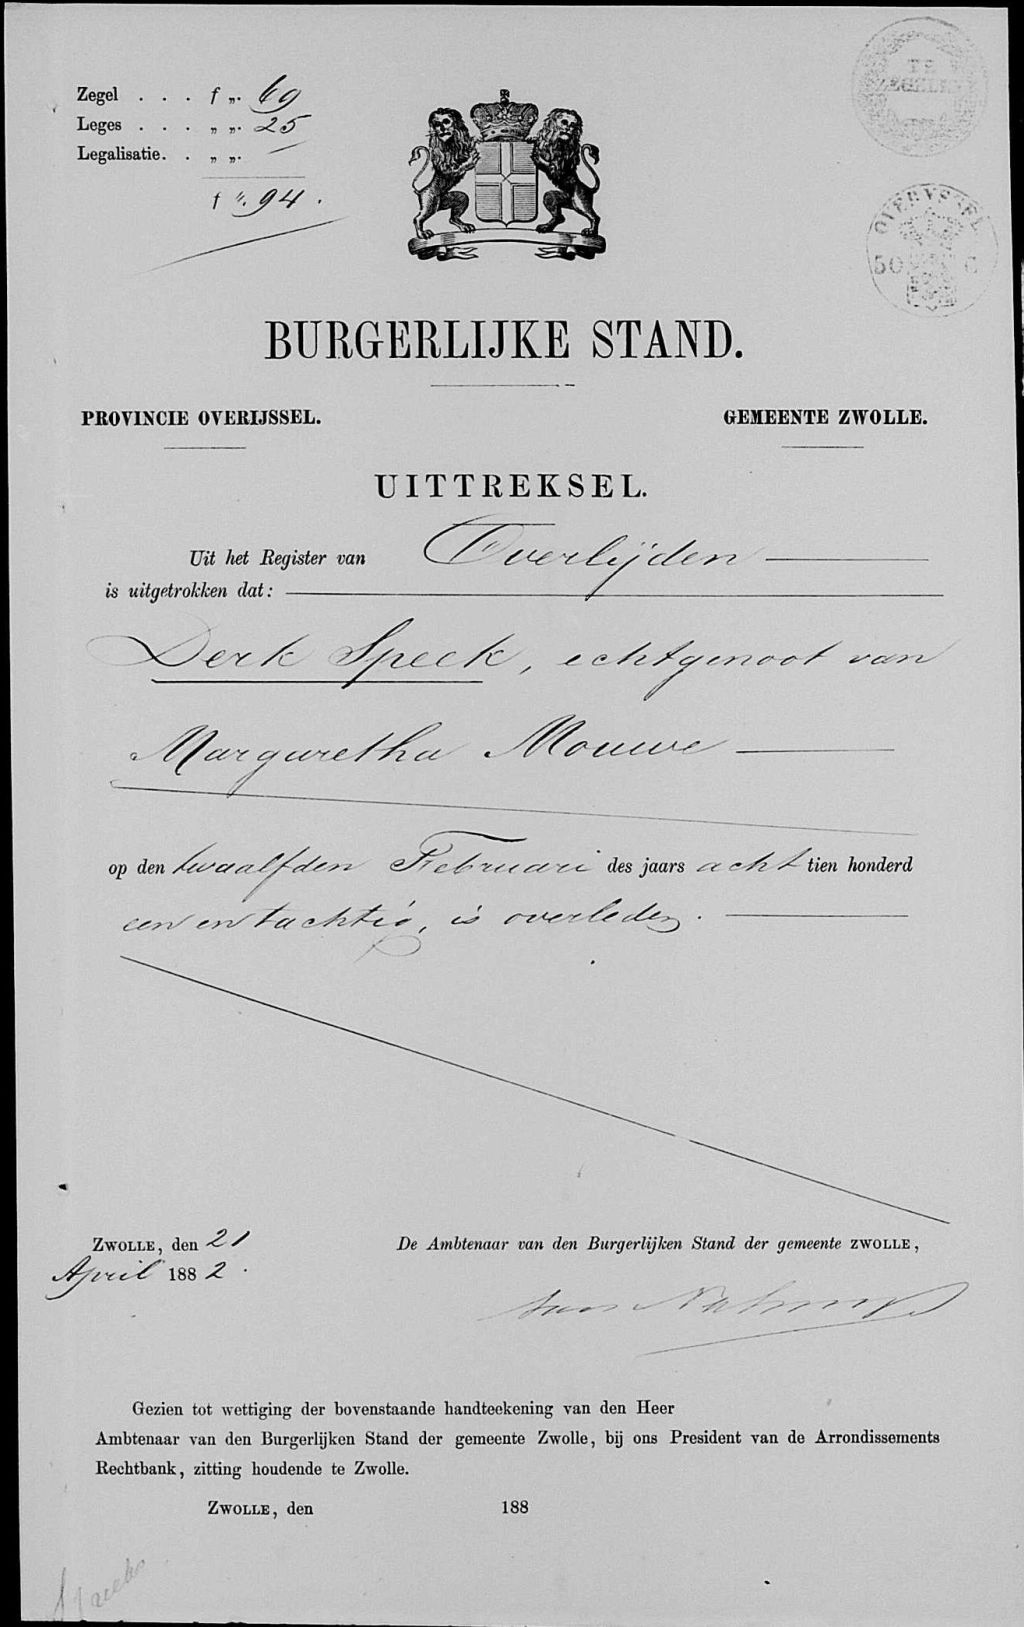 Zegel . . . f „. 69
Leges . . . „ „. 25
Legalisatie. . „ „. —
f „. 94.
TE
ZEGELEN
OVERYSSEL
50 C
BURGERLIJKE STAND.
PROVINCIE OVERIJSSEL. GEMEENTE ZWOLLE.
UITTREKSEL.
Uit het Register van Overlijden
is uitgetrokken dat:
Derk Speek, echtgenoot van
Margaretha Mouwe
op den twaalfden Februari des jaars acht tien honderd
een en tachtig, is overleden.
ZWOLLE, den 21 De Ambtenaar van den Burgerlijken Stand der gemeente ZWOLLE,
April 1882.
van
Gezien tot wettiging der bovenstaande handteekening van den Heer
Ambtenaar van den Burgerlijken Stand der gemeente Zwolle, bij ons President van de Arrondissements
Rechtbank, zitting houdende te Zwolle.
ZWOLLE, den 188